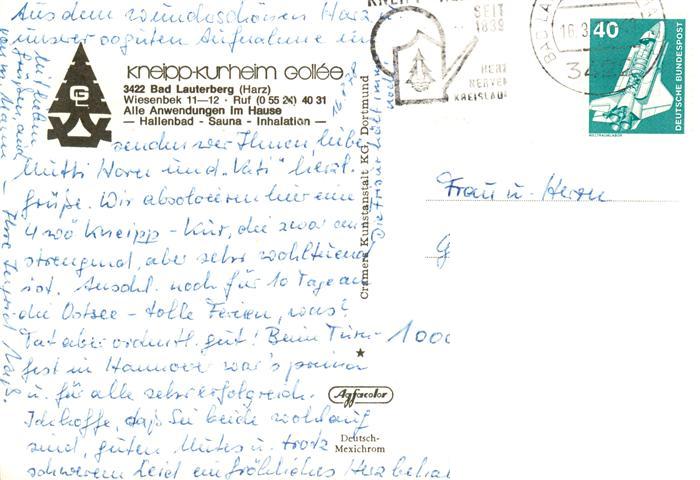 Aus dem wunderschönen Harz u.
unserer oguten Aufnahme im
kneipp-kurheim Gollée
3422 Bad Lauterberg (Harz)
Wiesenbek 11—12 · Ruf (0 55 24) 40 31
Alle Anwendungen im Hause
— Hallenbad - Sauna - Inhalation —
GL
senden wir Ihnen, liebe
Mutti Horn und "Vati" herzl.
Grüße. Wir absolvieren hier eine
4 wö Kneipp-Kur, die zwar an
strengend, aber sehr wohltuend
ist. Anschl. noch für 10 Tage an
die Ostsee - tolle Ferien, was?
Tut aber ordentl. gut! Beim Turn-
fest in Hannover war's prima
u. für alle sehr erfolgreich.
Ich hoffe, daß Sie beide wohlauf
sind, guten Mutes u. trotz
schwerem Leid ein fröhliches Herz behal
Ihre Ingrid
Cramers Kunstanstalt KG, Dortmund
Agfacolor
Deutsch-
Mexichrom
SEIT
1839
HERZ
NERVEN
KREISLAU
BAD LA
16.3
40
DEUTSCHE BUNDESPOST
WELTRAUMLABOR
Frau u. Herrn
G
1000